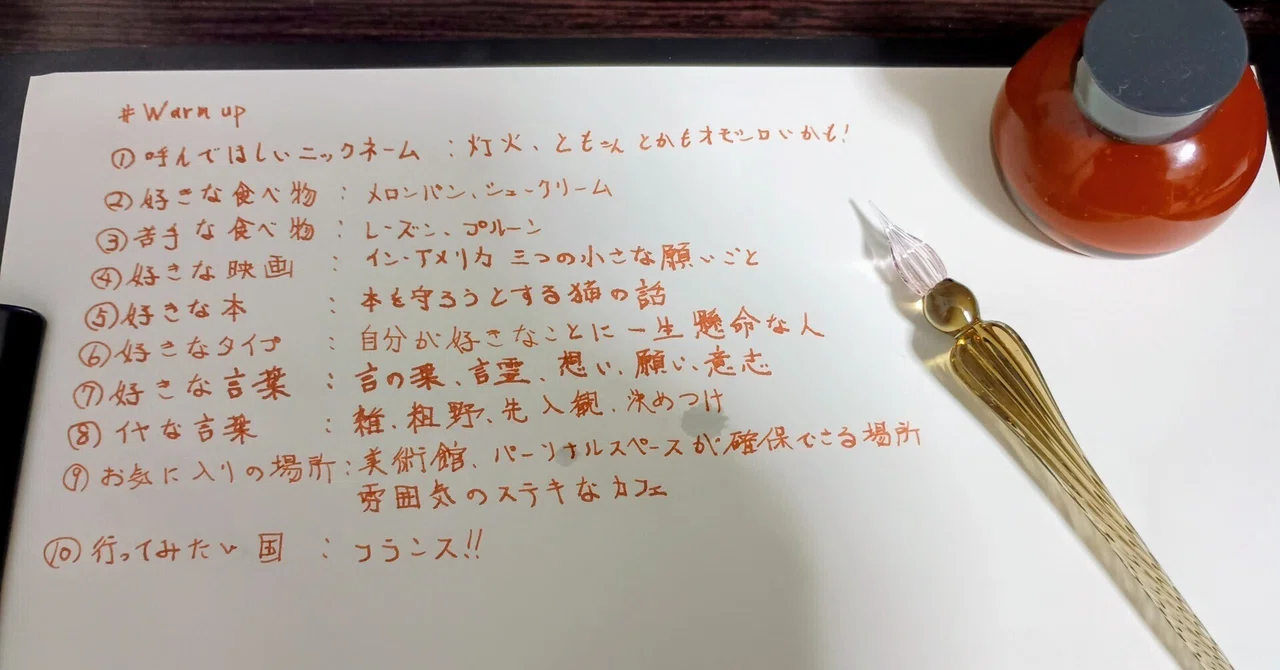 #Warm up
①呼んでほしいニックネーム：灯火、ともさんとかもオモシロいかも！
②好きな食べ物：メロンパン、シュークリーム
③苦手な食べ物：レーズン、プルーン
④好きな映画：イン・アメリカ 三つの小さな願いごと
⑤好きな本：本を守ろうとする猫の話
⑥好きなタイプ：自分が好きなことに一生懸命な人
⑦好きな言葉：言の葉、言霊、想い、願い、意志
⑧イヤな言葉：雑、粗野、先入観、決めつけ
⑨お気に入りの場所：美術館、パーソナルスペースが確保できる場所
雰囲気のステキなカフェ
⑩行ってみたい国：フランス!!